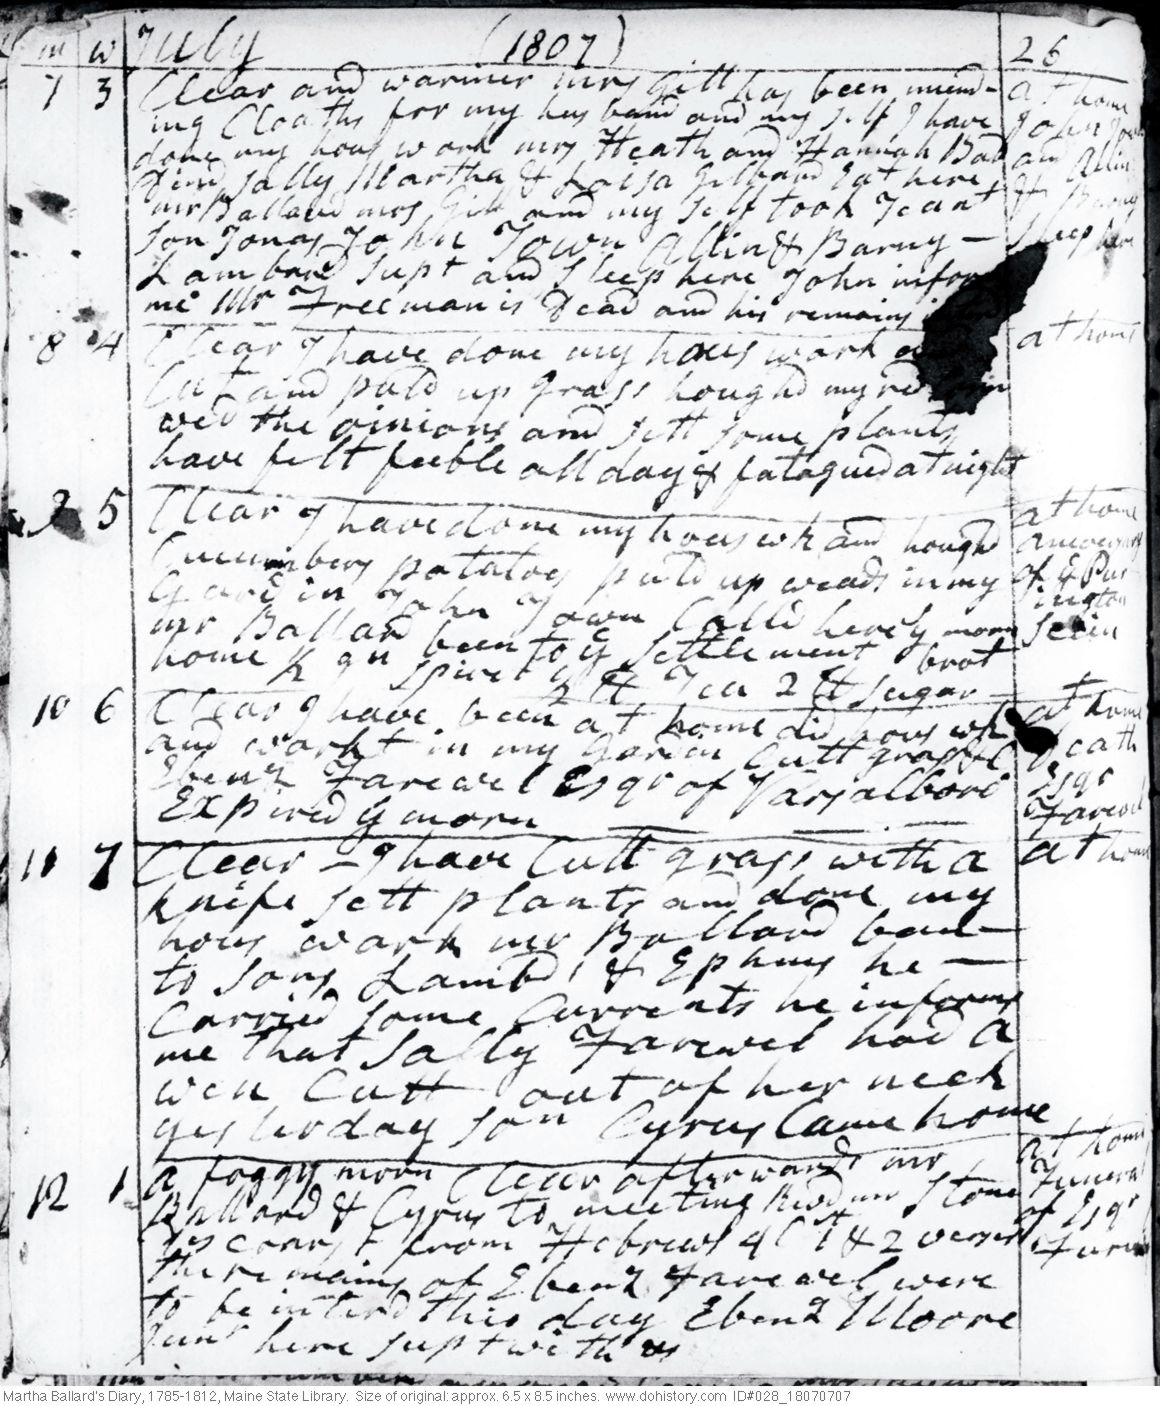 m w July (1807) 26
7 3 Clear and warmer mrs Gill has been mend- at home
ing Cloaths for my husband and my self I have John Town
done my hous work mrs Heath and Hannah Bal and Allin
Sally Martha & Gilbard Eat here & Barny
mr Ballard mrs Gill and my self took Tea at sleep here
son Jonas John Town Allin & Barny —
Lambard supt and sleep here John inform
me mr Freeman is Dead and his remains
8 4 Clear I have done my hous work at home
Cut and puld up grass houghd my
wed the oinions and sett some plants
have felt feeble all day & fatagued at night
9 5 Clear I have done my hous wk and houghd at home
Cucumbers potatoes puld up weads in my of E Pur
Gardin John Town Calld here y morn ington
mr Ballard been to y settlement brot seen
home ½ gn spirit ½ lb Tea 2 lb sugar
10 6 Clear I have been at home did hous wk at home
and workt in my Gardin Cutt grass &c Death
Ebenz Farewel Esqr of Varsalboro Esqr
Expired y morn Farewel
11 7 Clear - I have Cutt grass with a at home
knife sett plants and done my
hous work mr Ballard been
to sons Lambd, & Ephms he —
Carried some Currents he informs
me that Sally Farewel had a
wen Cutt out of her neck
yesterday son Cyrus Came home
12 1 a foggy morn Clear afterwards mr at home
Ballard & Cyrus to meeting mr Stone Funeral
Discoarst from Hebrews 4 Ct & 2 verse of Esqr
the remains of Ebenz Farewel were
to be interd this day Ebenz Moore
Junr here supt with us
Martha Ballard's Diary, 1785-1812, Maine State Library. Size of original: approx. 6.5 x 8.5 inches. www.dohistory.com ID#028_18070707